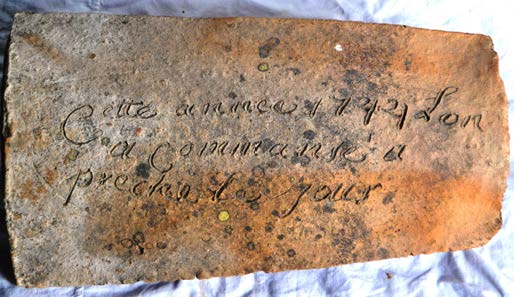 Cette annee 1742 Lon
a Commansé a
preche le jour